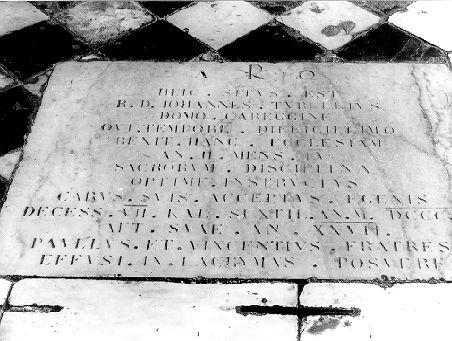 A R O
HEIC . SITVS . EST
R . D . IOHANNES . TVRELLIVS
DOMO . CARUCCINE
QVI . TEMPORE . DIFFICILLIMO
REXIT . HANC . ECCLESIAM
AN . II . MENS . IV
SACRORVM . DISCIPLINA
OPTIME . INSTRVCTVS
CARVS . SVIS . ACCEPTVS . EGENIS
DECESS . VII . KAL . SEXTIL . AN . M . DCCC
AET . SVAE . AN . XXVII
PAVLLVS . ET . VINCENTIVS . FRATRES
EFFVSI . IN . LACRVMAS . POSVERE